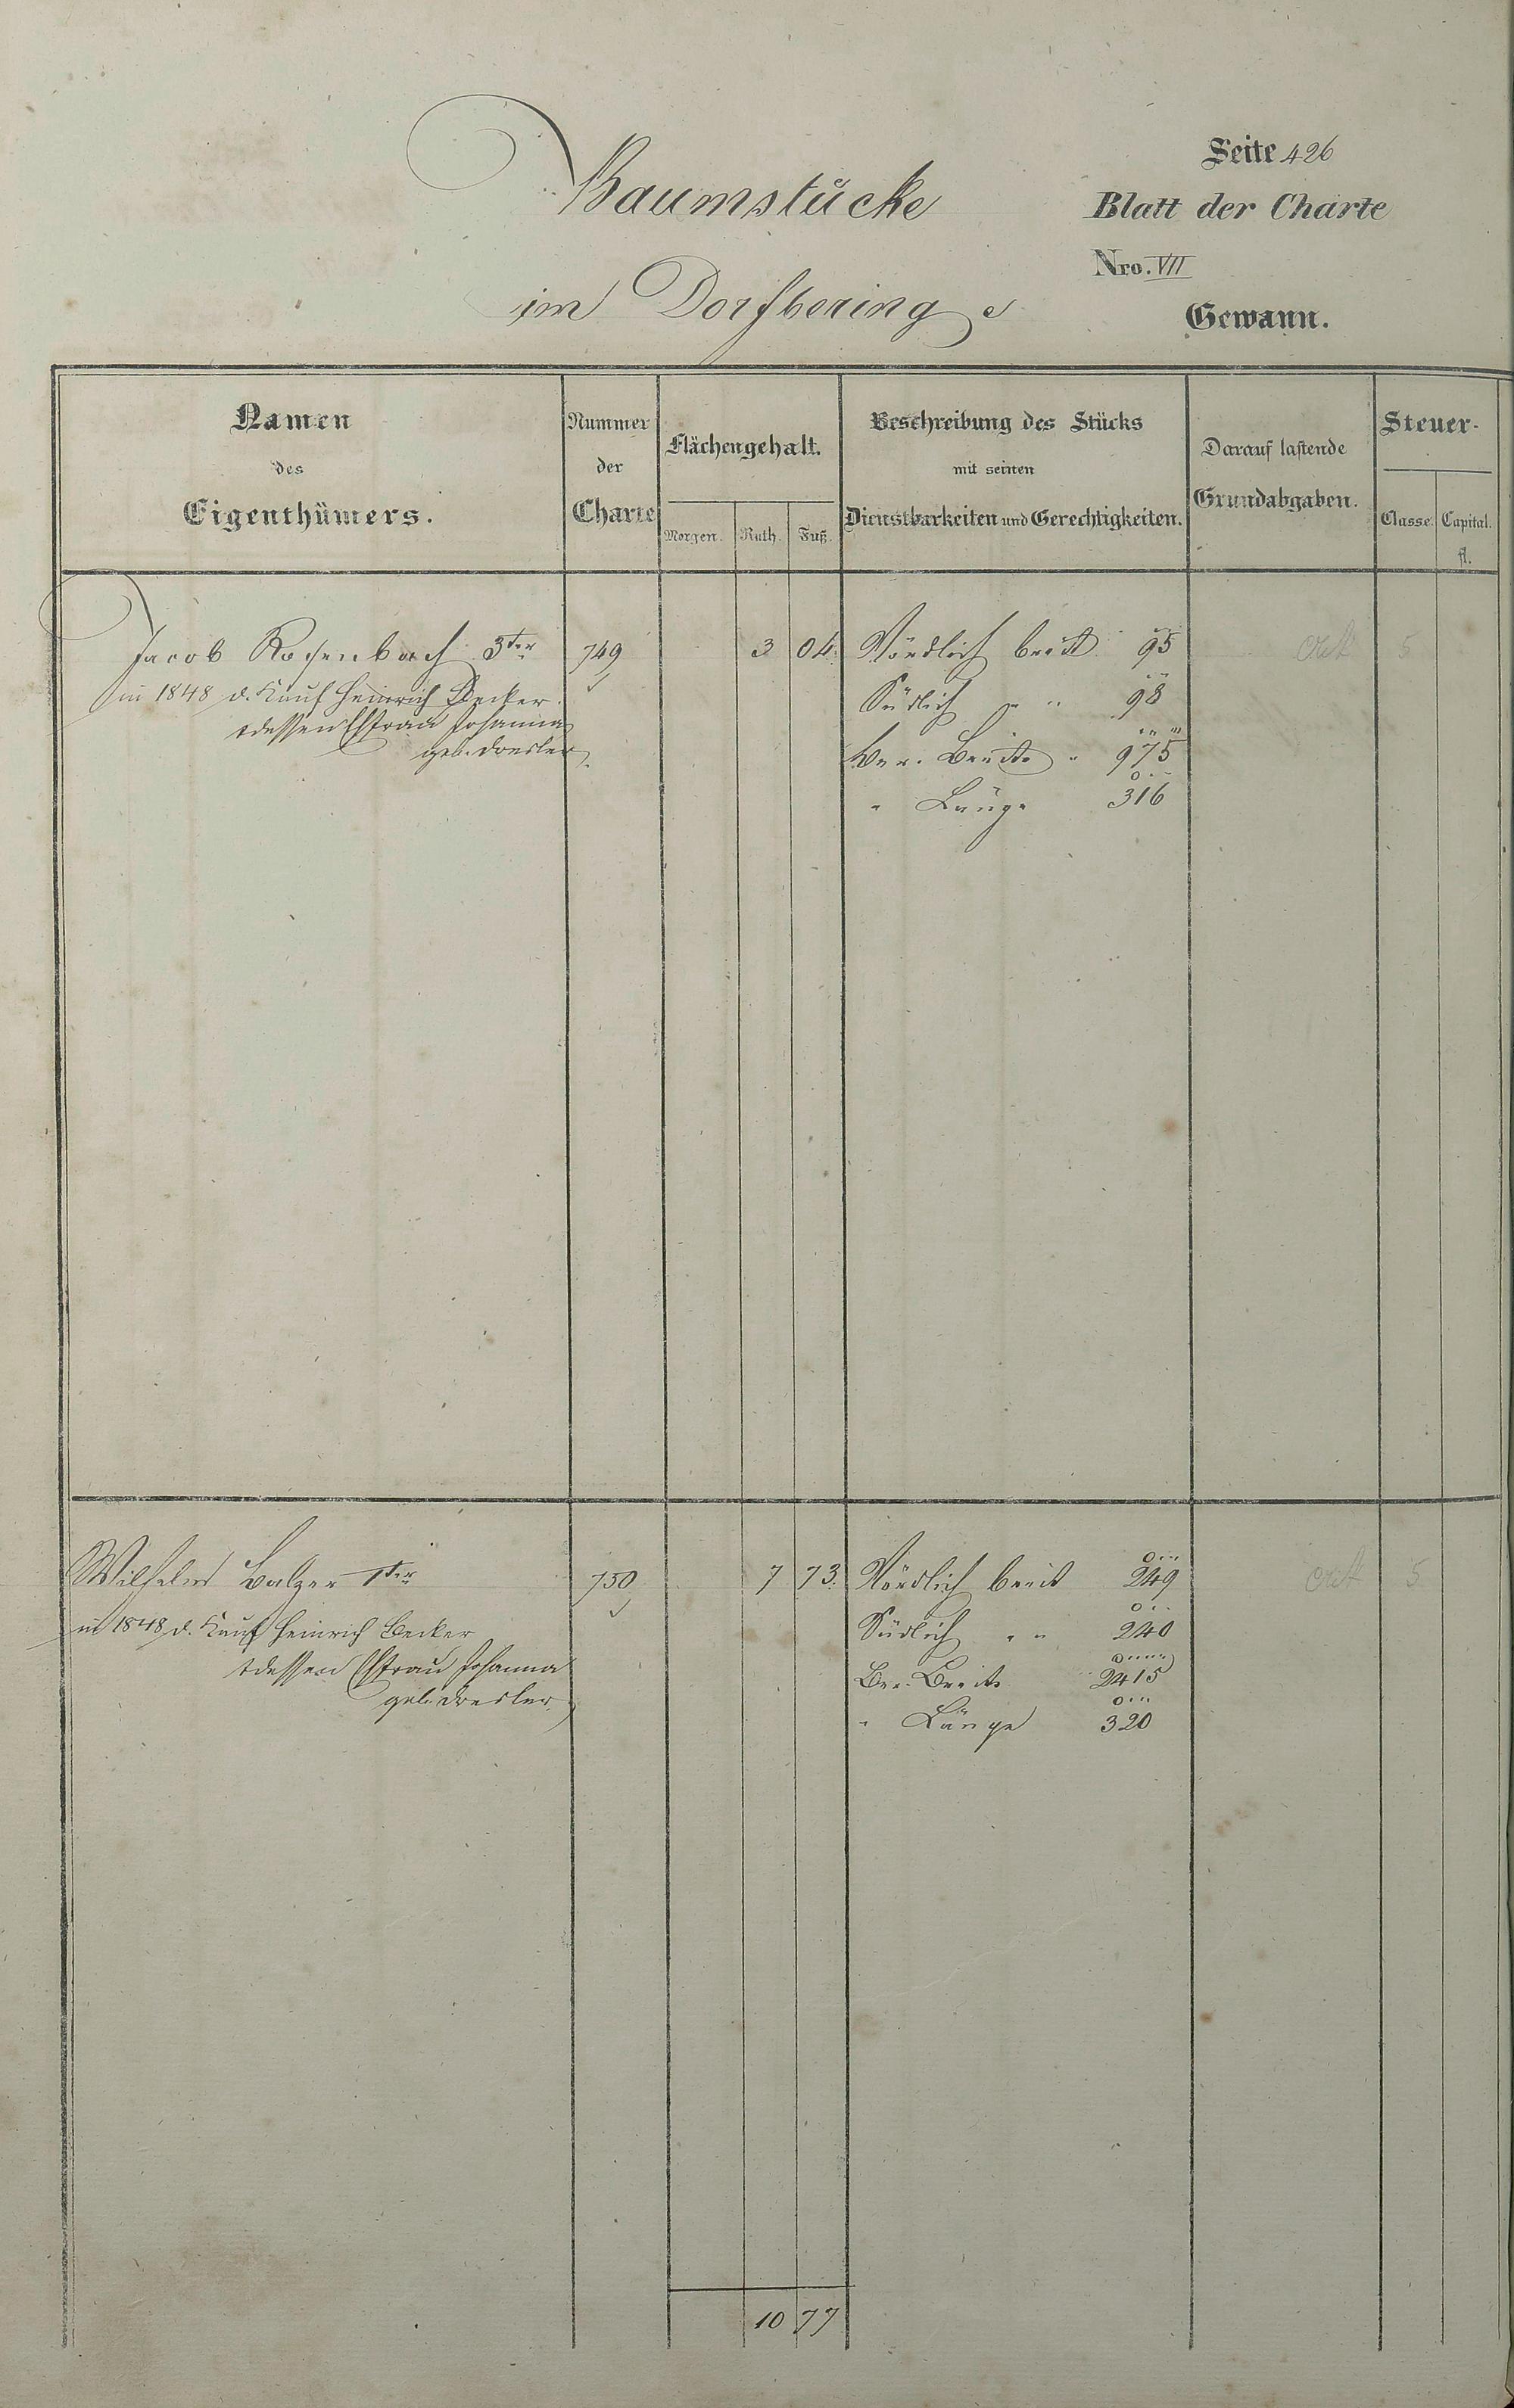 Seite 426
Baumstücke
Blatt der Charte
Nro. VII
im Dorfberinge
Gewann.
Namen
des
Eigenthümers.
Nummer
der
Charte
Flächengehalt.
Morgen. Ruth. Fuß.
Beschreibung des Stücks
mit seinen
Dienstbarkeiten und Gerechtigkeiten.
Darauf lastende
Grundabgaben.
Steuer-
Classe. Capital.
fl.
Jacob Rosenbach 3ter 749 3 04 Nördlich breit 95 5
in 1848 d. Kauf Heinrich Becker Südlich " " 98
Ehefrau Johanna
geb. Dresler Ber. Breite " 975
" Länge 316
Wilhelm Balzer 1ter 750 7 73 Nördlich breit 249 5
in 1848 d. Kauf Heinrich Becker Südlich " " 240
Ehefrau Johanna Ber. Breite 2415
geb. Dresler
" Länge 320
10 77